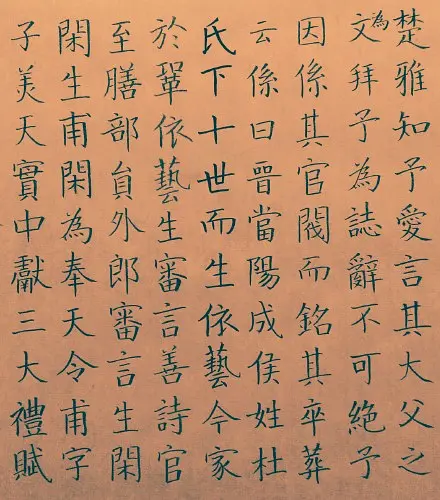 楚雅知予愛言其大父之
為文拜予為誌辭不可絕予
因係其官閥而銘其卒葬
云係曰晉當陽成侯姓杜
氏下十世而生依藝今家
於鞏依藝生審言善詩官
至膳部員外郎審言生閑
閑生甫閑為奉天令甫字
子美天實中獻三大禮賦